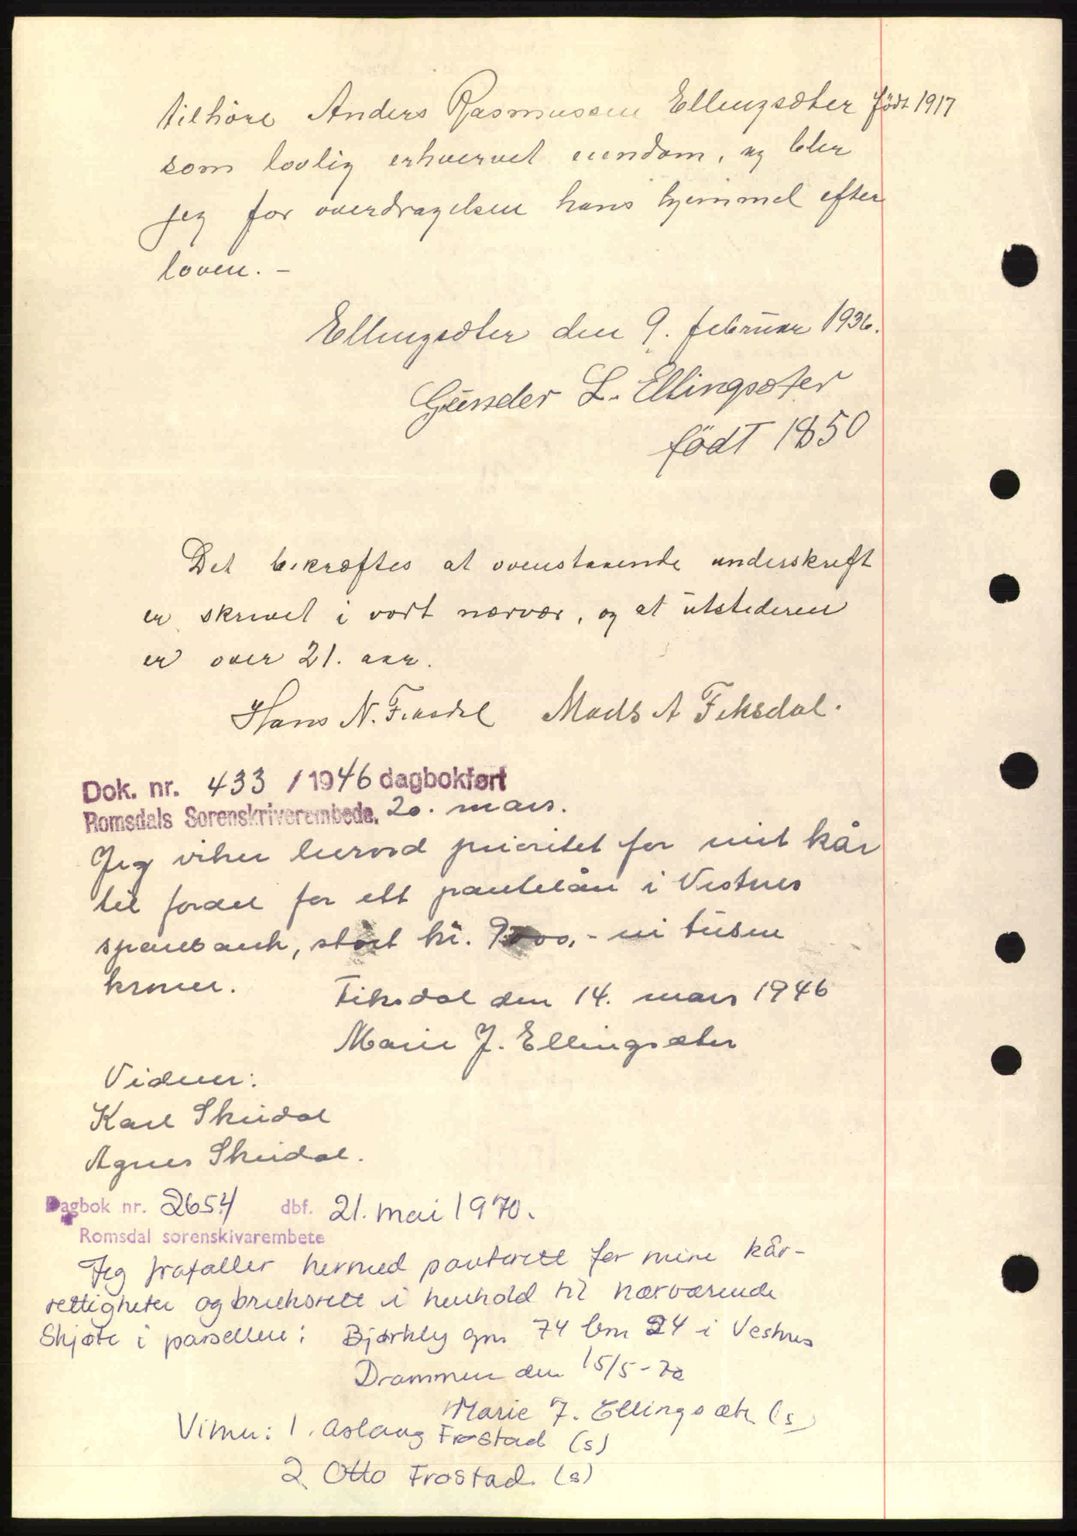 tilhöre Anders Rasmussen Ellingsæter født 1917
som lovlig erhvervet eiendom, og blir
jeg for overdragelsen hans hjemmel efter
loven. -
Ellingsæter den 9. februar 1936.
Gunder L. Ellingsæter
födt 1850
Det bekræftes at ovenstaaende underskrift
er skrevet i vort nærvær, og at utstederen
er over 21. aar.
Hans N. Fiksdal Mads A Fiksdal.
Dok. nr. 433 / 1946 dagbokført
Romsdals Sorenskriverembede, 20. mars.
Jeg viker herved prioritet for mit kår
til fordel for ett pantelån i Vestnes
sparebank, stort kr. 9000,- ni tusen
kroner.
Fiksdal den 14. mars 1946
Marie J. Ellingsæter
Vidner:
Karl Skeidal
Agnes Skeidal.
Dagbok nr. 2654 dbf. 21. mai 1970.
Romsdal sorenskivarembete
Jeg frafaller hermed panterett for mine kår-
rettigheter og bruksrett i henhold til nærværende
Skjøte i parsellen: Bjørkly gnr 74 bnr 24 i Vestnes
Drammen den 15/5-70
Marie J. Ellingsæter (s)
Vitner: 1. Aslaug Frostad (s)
2. Otto Frostad (s)